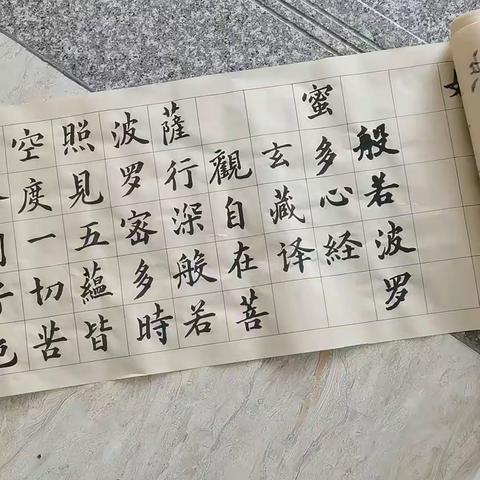 般若波罗
蜜多心経
玄藏译
觀自在菩
薩行深般若
波罗密多時
照見五蘊皆
空度一切苦
色